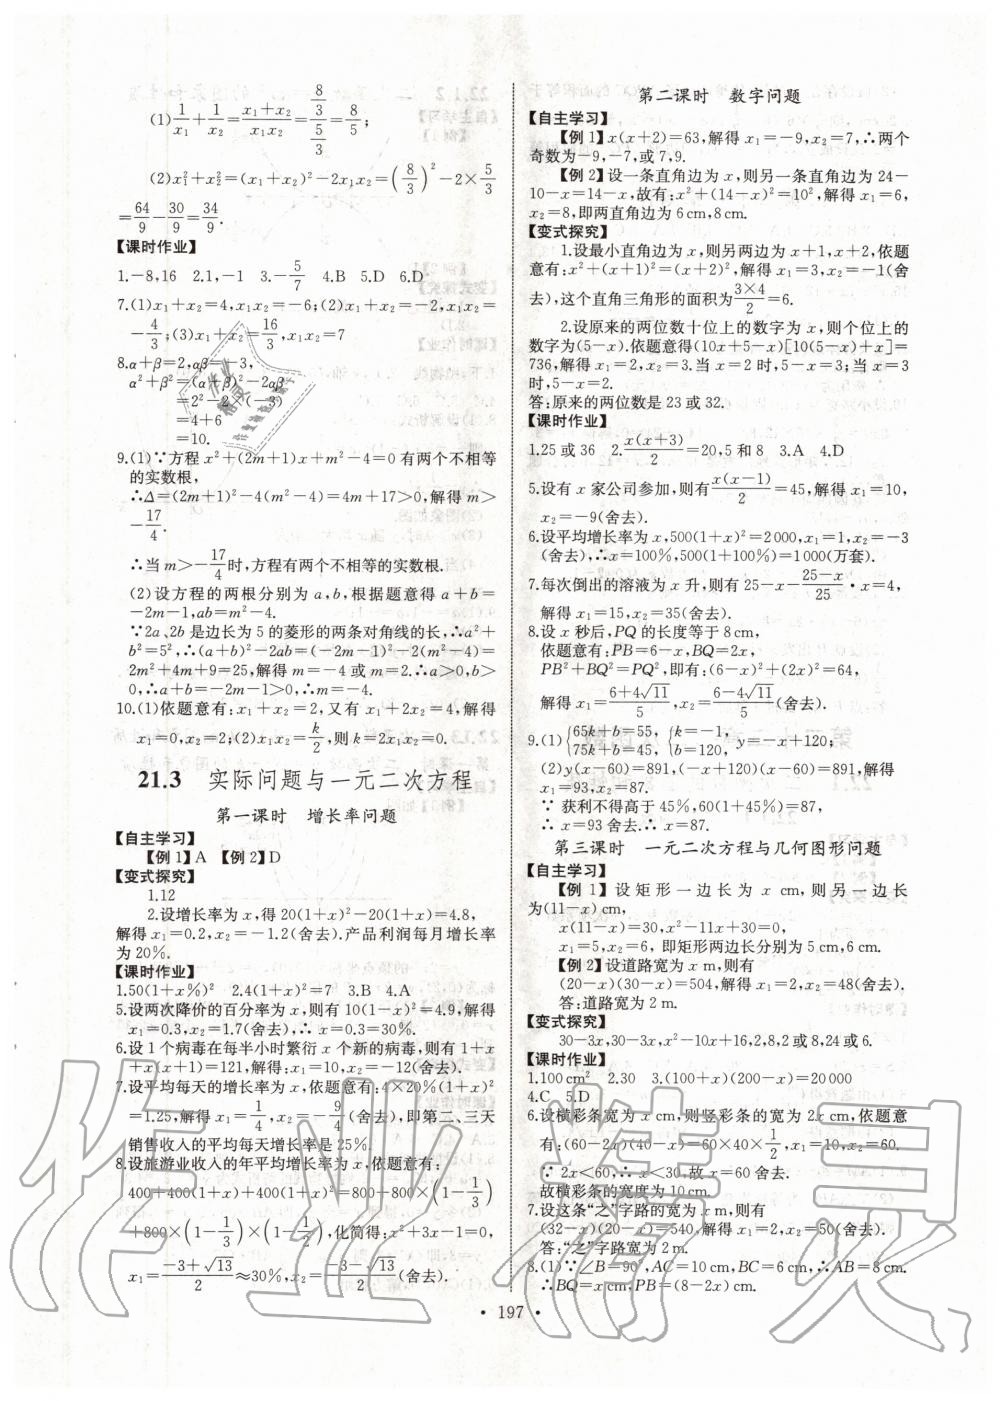 (1)1/x₁+1/x₂=(x₁+x₂)/(x₁x₂)=(8/3)/(5/3)=8/5;
(2)x₁²+x₂²=(x₁+x₂)²-2x₁x₂=(8/3)²-2×5/3
=64/9-30/9=34/9.
【课时作业】
1.-8,16 2.1,-1 3.-5/7 4.B 5.D 6.D
7.(1)x₁+x₂=4,x₁x₂=-6;(2)x₁+x₂=-2,x₁x₂=
-4/3;(3)x₁+x₂=16/3,x₁x₂=7
8.α+β=2,αβ=-3,
α²+β²=(α+β)²-2αβ
=2²-2×(-3)
=4+6
=10.
9.(1)∵方程 x²+(2m+1)x+m²-4=0 有两个不相等
的实数根,
∴Δ=(2m+1)²-4(m²-4)=4m+17>0,解得 m>
-17/4.
∴当 m>-17/4时,方程有两个不相等的实数根.
(2)设方程的两根分别为 a,b,根据题意得 a+b=
-2m-1,ab=m²-4.
∵2a、2b 是边长为 5 的菱形的两条对角线的长,∴a²+
b²=5²,∴(a+b)²-2ab=(-2m-1)²-2(m²-4)=
2m²+4m+9=25,解得 m=-4或 m=2.∵a>0,b>
0,∴a+b=-2m-1>0,∴m=-4.
10.(1)依题意有:x₁+x₂=2,又有 x₁+2x₂=4,解得
x₁=0,x₂=2;(2)x₁x₂=k/2,则k=2x₁x₂=0.
21.3 实际问题与一元二次方程
第一课时 增长率问题
【自主学习】
【例 1】A 【例 2】D
【变式探究】
1.12
2.设增长率为 x,得 20(1+x)²-20(1+x)=4.8,
解得 x₁=0.2,x₂=-1.2(舍去).产品利润每月增长率
为 20%.
【课时作业】
1.50(1+x%)² 2.4(1+x)²=7 3.B 4.A
5.设两次降价的百分率为 x,则有 10(1-x)²=4.9,解得
x₁=0.3,x₂=1.7(舍去),∴x=0.3=30%.
6.设 1 个病毒在每半小时繁衍 x 个新的病毒,则有 1+x
+x(x+1)=121,解得:x₁=10,x₂=-12(舍去).
7.设平均每天的增长率为 x,依题意有:4×20%(1+x)²
=1.25,解得 x₁=1/4,x₂=-9/4(舍去),即第二、三天
销售收入的平均每天增长率是 25%.
8.设旅游业收入的年平均增长率为 x,依题意有:
400+400(1+x)+400(1+x)²=800+800×(1-1/3)
+800×(1-1/3)×(1-1/3),化简得:x²+3x-1=0,
x₁=(-3+√13)/2≈30%,x₂=(-3-√13)/2(舍去).
第二课时 数字问题
【自主学习】
【例 1】x(x+2)=63,解得 x₁=-9,x₂=7,∴两个
奇数为-9,-7,或 7,9.
【例 2】设一条直角边为 x,则另一条直角边为 24-
10-x=14-x,故有:x²+(14-x)²=10²,解得 x₁=6,
x₂=8,即两直角边为 6 cm,8 cm.
【变式探究】
1.设最小直角边为 x,则另两边为 x+1,x+2,依题
意有:x²+(x+1)²=(x+2)²,解得 x₁=3,x₂=-1(舍
去),这个直角三角形的面积为(3×4)/2=6.
2.设原来的两位数十位上的数字为 x,则个位上的
数字为(5-x).依题意得(10x+5-x)[10(5-x)+x]=
736,解得 x₁=2,x₂=3.当 x=2 时,5-x=3;当 x=3
时,5-x=2.
答:原来的两位数是 23 或 32.
【课时作业】
1.25 或 36 2.x(x+3)/2=20,5 和 8 3.A 4.D
5.设有 x 家公司参加,则有x(x-1)/2=45,解得 x₁=10,
x₂=-9(舍去).
6.设平均增长率为 x,500(1+x)²=2 000,x₁=1,x₂=-3
(舍去),∴x=100%,500(1+100%)=1 000(万套).
7.每次倒出的溶液为 x 升,则有 25-x-(25-x)/25·x=4,
解得 x₁=15,x₂=35(舍去).
8.设 x 秒后,PQ 的长度等于 8 cm,
依题意有:PB=6-x,BQ=2x,
PB²+BQ²=PQ²,即有:(6-x)²+(2x)²=64,
解得 x₁=(6+4√11)/5,x₂=(6-4√11)/5(舍去).
9.(1){65k+b=55, 75k+b=45, {k=-1, b=120, y=-x+120;
(2)y(x-60)=891,(-x+120)(x-60)=891,解得
x₁=93,x₂=87.
∵ 获利不得高于 45%,60(1+45%)=87,
∴ x=93 舍去,∴x=87.
第三课时 一元二次方程与几何图形问题
【自主学习】
【例 1】设矩形一边长为 x cm,则另一边长
为(11-x)cm,
x(11-x)=30,x²-11x+30=0,
x₁=5,x₂=6,即矩形两边长分别为 5 cm,6 cm.
【例 2】设道路宽为 x m,则有
(20-x)(30-x)=504,解得 x₁=2,x₂=48(舍去).
答:道路宽为 2 m.
【变式探究】
30-3x,30-3x,x²-10x+16,2,8,2 或 8,24 或 6.
【课时作业】
1.100 cm² 2.30 3.(100+x)(200-x)=20 000
4.C 5.D
6.设横彩条宽为 x cm,则竖彩条的宽为 2x cm,依题意
有:(60-2x)(40-x)=60×40×1/2,x₁=10,x₂=60.
∵ 2x<60,∴ x<30,故 x=60 舍去.
故横彩条的宽度为 10 cm.
7.设这条“之”字路的宽为 x m,则有
(32-x)(20-x)=540,解得 x₁=2,x₂=50(舍去).
答:“之”字路宽为 2 m.
8.(1)∵∠B=90°,AC=10 cm,BC=6 cm,∴AB=8 cm.
∴BQ=x cm,PB=(8-2x) cm.
· 197 ·
作业精灵